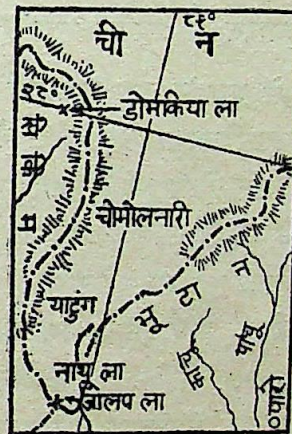 ८९°
ची न
२८°
डोमकिया ला
सिक्किम
चोमोलनारी
याटुंग
भूटान
नाथू ला
जालप ला
पारो